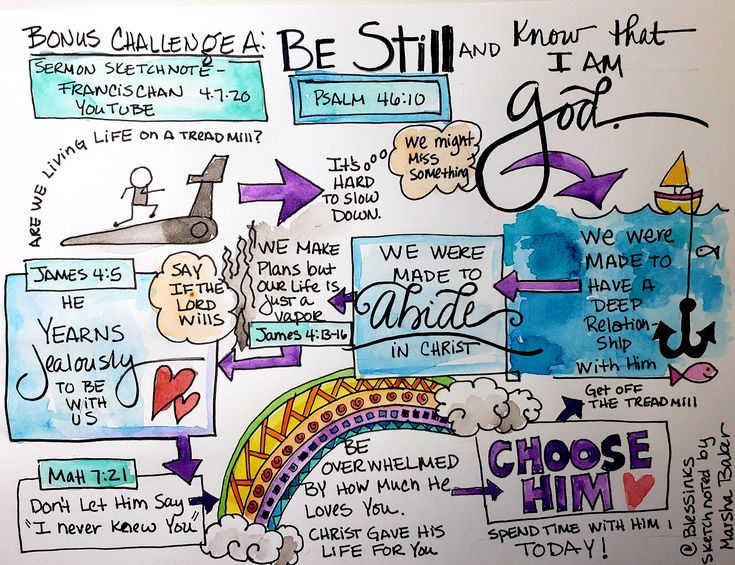 BONUS CHALLENGE A:
BE STILL AND KNOW THAT
I AM
god.
SERMON SKETCHNOTE -
FRANCIS CHAN 4.7.20
YOUTUBE
PSALM 46:10
ARE WE LIVING LIFE ON A TREADMILL?
IT'S
HARD
TO SLOW
DOWN.
We might
MISS
Something
We were
MADE TO
HAVE A
DEEP
Relation-
SHIP
With Him
WE WERE
MADE TO
Abide
IN CHRIST
WE MAKE
Plans but
our Life is
just a
vapor
James 4:13-16
SAY
IF THE
LORD
Wills
JAMES 4:5
HE
YEARNS
Jealously
TO BE
WITH
US
Matt 7:21
Don't Let Him Say
"I never knew You"
BE
OVERWHELMED
BY HOW MUCH HE
LOVES YOU.
CHRIST GAVE HIS
LIFE FOR YOU
CHOOSE
HIM
SPEND TIME WITH HIM
TODAY!
Get OFF
THE TREADMILL
@Blessinks
Sketchnoted by
Marsha Baker